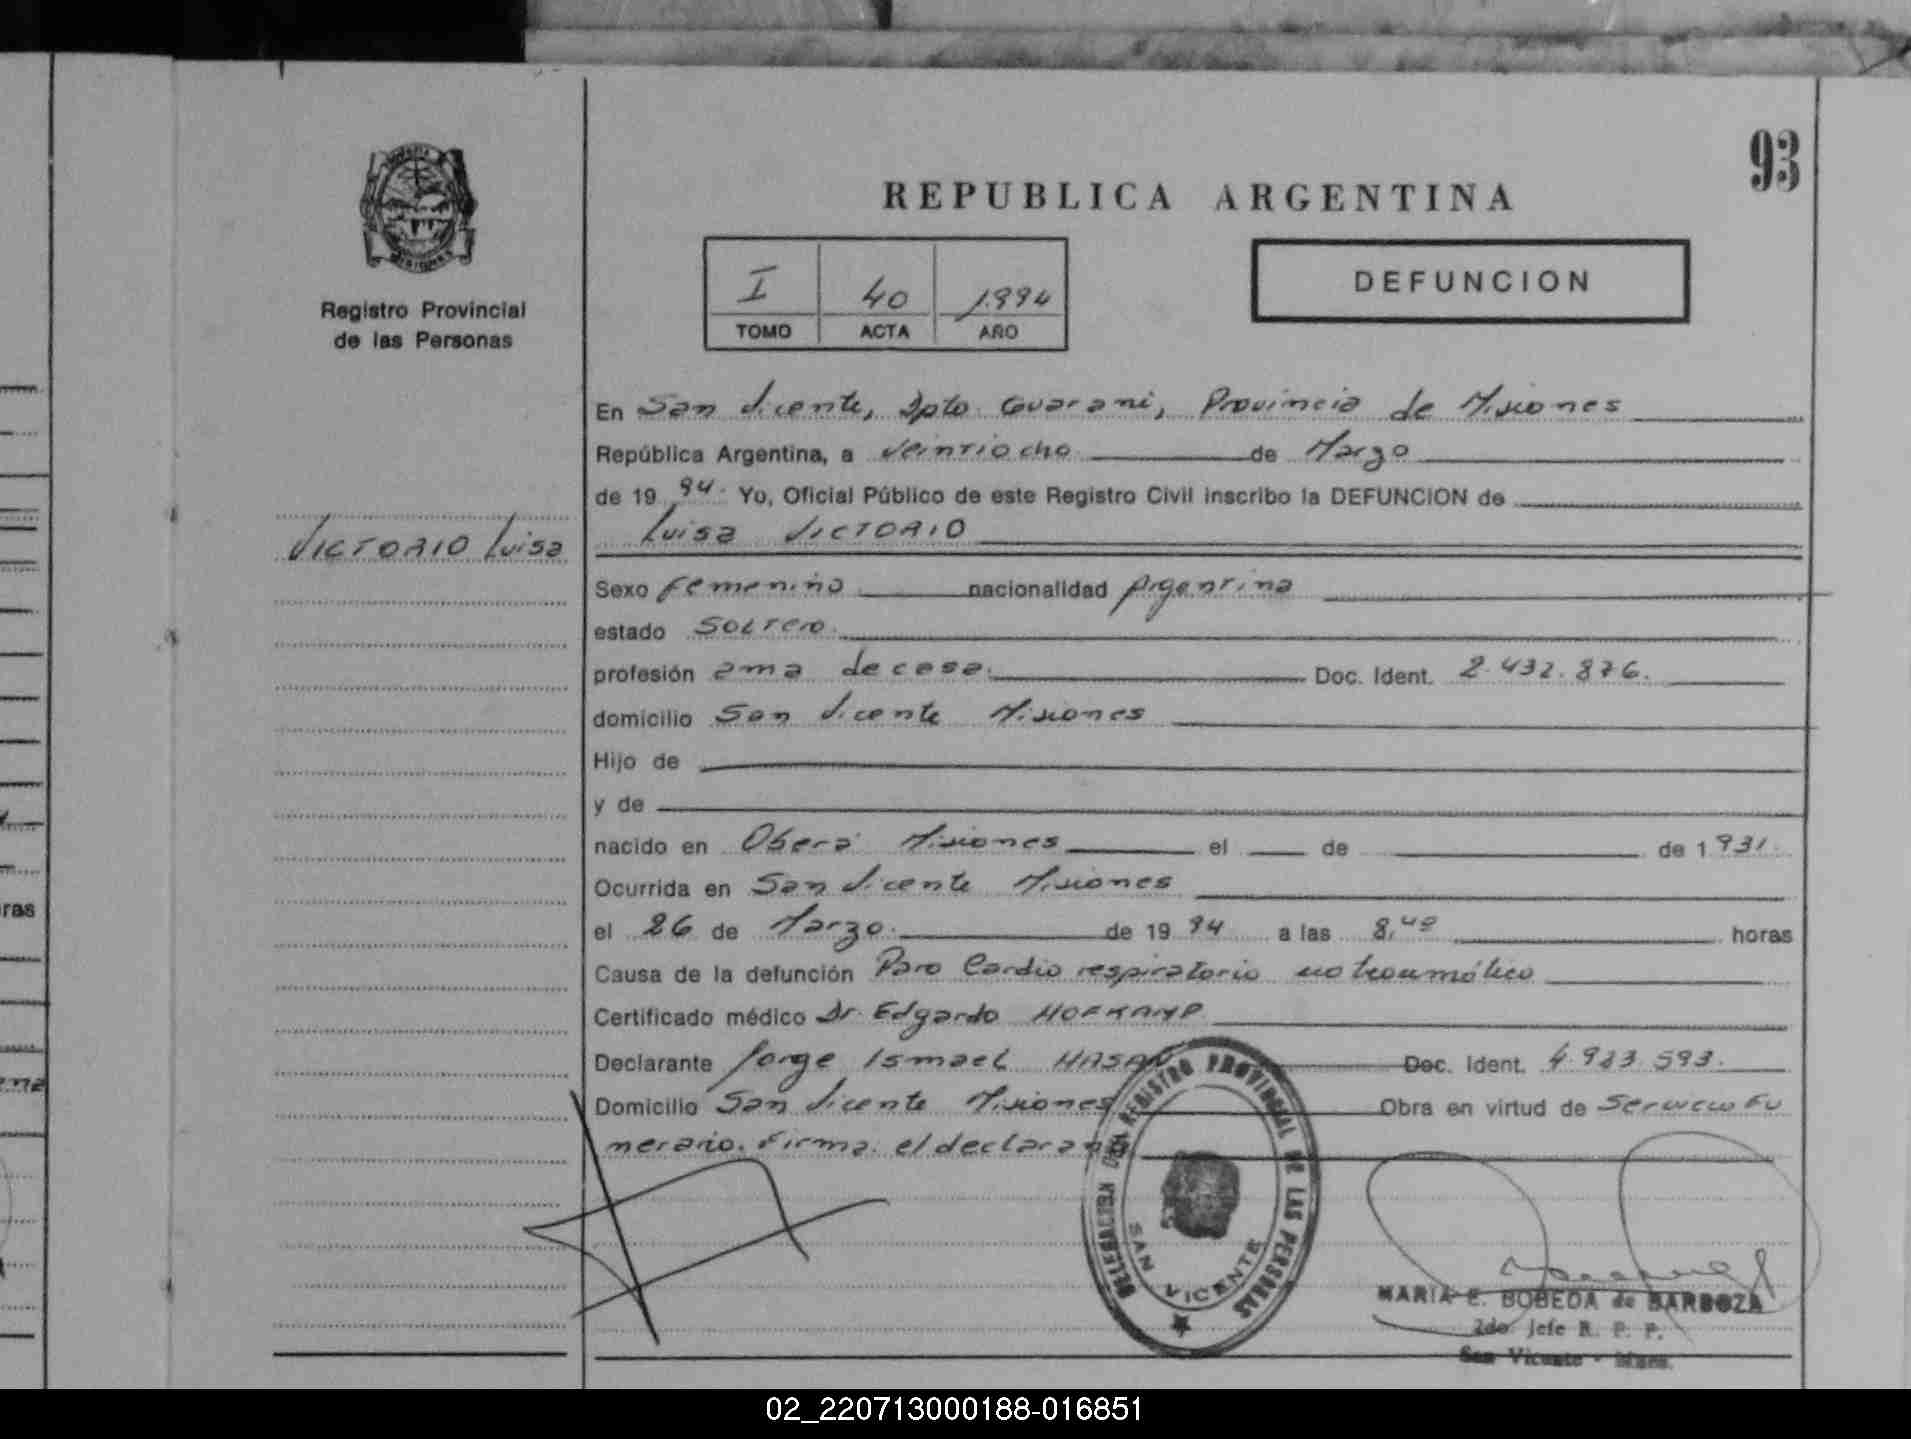 93
REPUBLICA ARGENTINA
I 40 1.994
TOMO ACTA AÑO
DEFUNCION
Registro Provincial
de las Personas
En San Vicente, Dpto Guarani, Provincia de Misiones
República Argentina, a veintiocho de Marzo
de 19 94. Yo, Oficial Público de este Registro Civil inscribo la DEFUNCION de
Luisa VICTORIO
VICTORIO Luisa
Sexo Femenino nacionalidad Argentina
estado Soltero.
profesión ama de casa. Doc. Ident. 2.432.876.
domicilio San Vicente Misiones
Hijo de
y de
nacido en Oberá Misiones el de de 1931.
Ocurrida en San Vicente Misiones
el 26 de Marzo. de 19 94 a las 8,40 horas
Causa de la defunción Paro Cardio respiratorio no traumático
Certificado médico Dr. Edgardo HOFKAMP
Declarante Jorge Ismael HASAN Doc. Ident. 4.983.593.
Domicilio San Vicente Misiones Obra en virtud de Servicio Fu
nerario. Firma. el declarante
DELEGACION DEL REGISTRO PROVINCIAL DE LAS PERSONAS
SAN VICENTE
MARIA E. BOBEDA de BARBOZA
2do. Jefe R. P. P.
San Vicente - Mnes.
ras
02_220713000188-016851